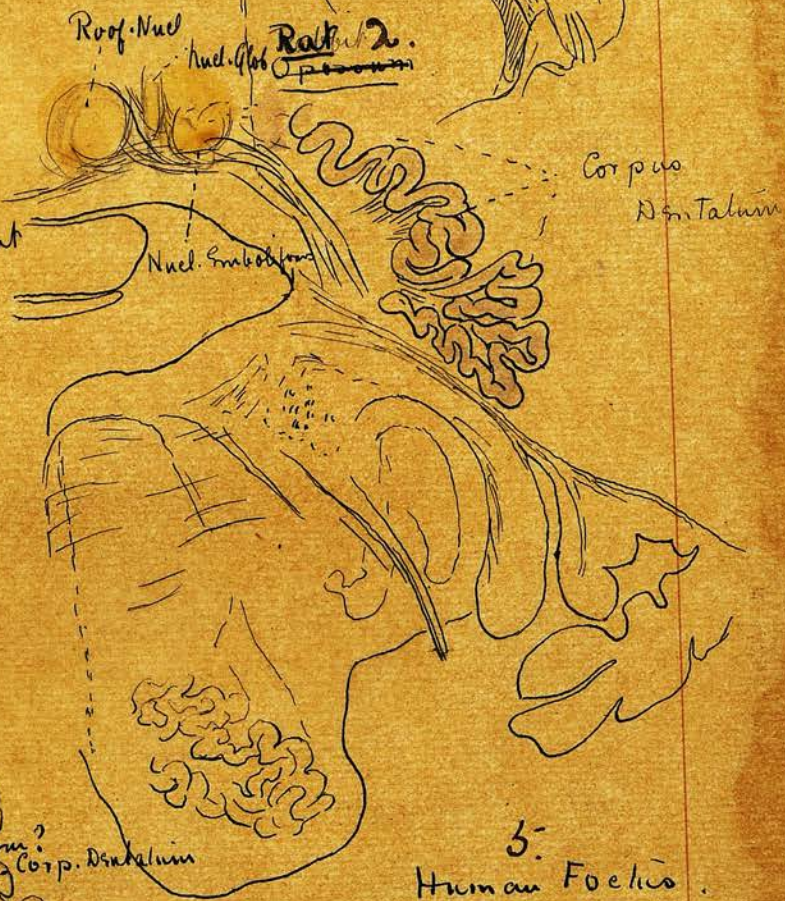 Roof. Nucl
Nucl. Glob
Rat 2.
Opossum
Corpus
Dentatum
Nucl. Emboliformis
Corp. Dentatum
5.
Human Foetus.